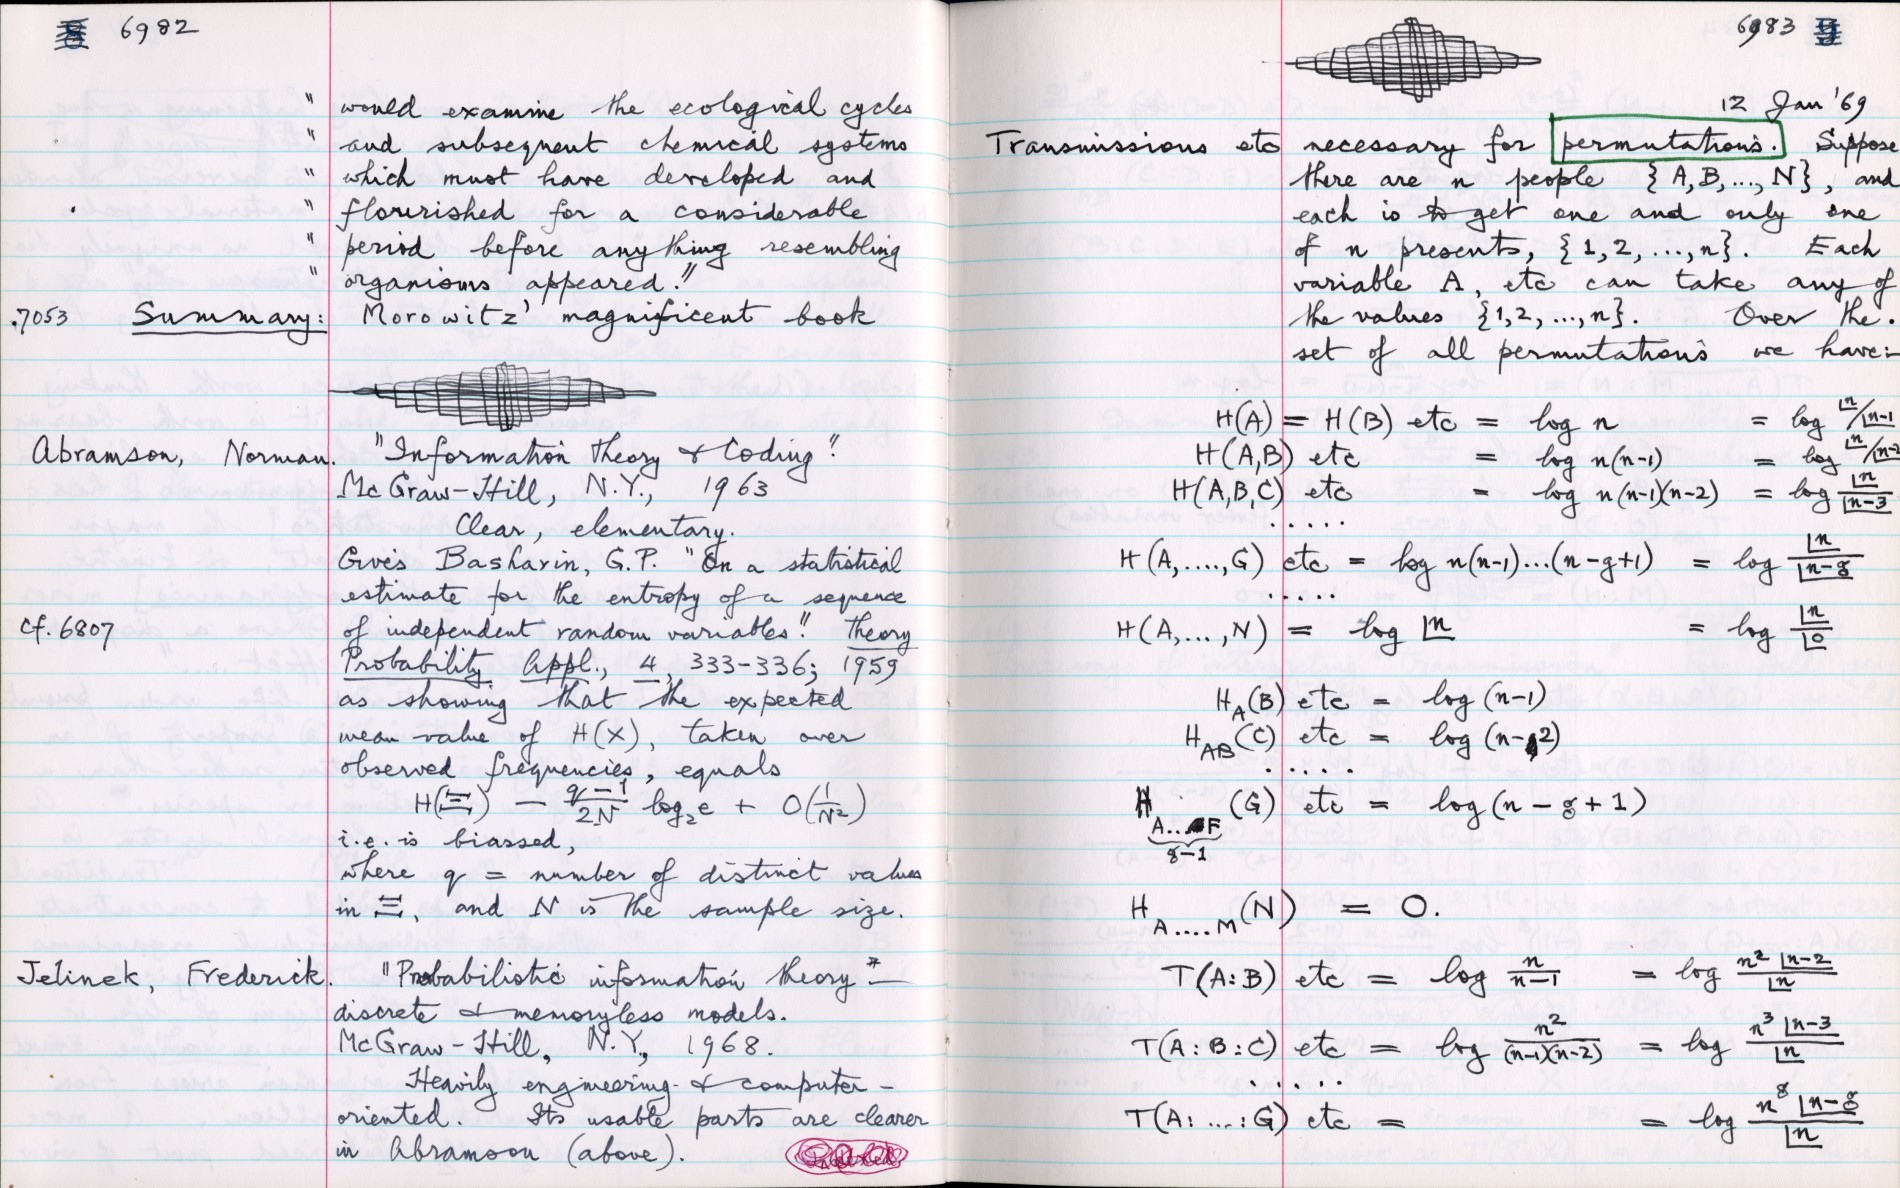 6982
" would examine the ecological cycles
" and subsequent chemical systems
" which must have developed and
" flourished for a considerable
" period before anything resembling
" organisms appeared."
.7053 Summary: Morowitz' magnificent book
Abramson, Norman. "Information theory & Coding".
McGraw-Hill, N.Y., 1963
Clear, elementary.
Gives Basharin, G.P. "On a statistical
estimate for the entropy of a sequence
cf. 6807 of independent random variables". Theory
Probability Appl., 4, 333-336; 1959
as showing that the expected
mean value of H(X), taken over
observed frequencies, equals
H(Ξ) − (q−1)/2N log₂e + O(1/N²)
i.e. is biassed,
where q = number of distinct values
in Ξ, and N is the sample size.
Jelinek, Frederick. "Probabilistic information theory" —
discrete & memoryless models.
McGraw-Hill, N.Y., 1968.
Heavily engineering- & computer-
oriented. Its usable parts are clearer
in Abramson (above).
6983
12 Jan '69
Transmissions etc necessary for permutations. Suppose
there are n people {A,B,...,N}, and
each is to get one and only one
of n presents, {1,2,...,n}. Each
variable A, etc can take any of
the values {1,2,...,n}. Over the
set of all permutations we have:-
H(A) = H(B) etc = log n = log |n/|n-1
H(A,B) etc = log n(n-1) = log |n/|n-2
H(A,B,C) etc = log n(n-1)(n-2) = log |n/|n-3
.....
H(A,....,G) etc = log n(n-1)...(n-g+1) = log |n/|n-g
.....
H(A,...,N) = log |n = log |n/|0
H_A(B) etc = log (n-1)
H_AB(C) etc = log (n-2)
.....
H_A...F (G) etc = log (n-g+1)
g-1
H_A....M(N) = 0.
T(A:B) etc = log n/(n-1) = log n² |n-2/|n
T(A:B:C) etc = log n²/(n-1)(n-2) = log n³ |n-3/|n
.....
T(A:...:G) etc = = log n^g |n-g/|n